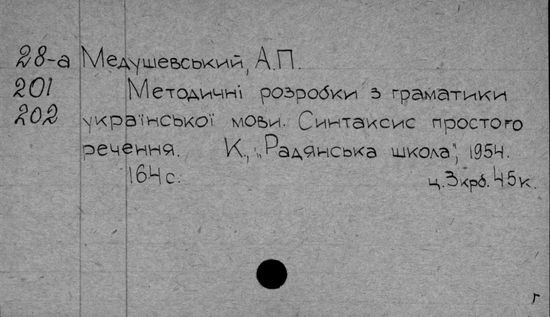 28-а Медушевський, А.П.
201 Методичні розробки з граматики
202 української мови. Синтаксис простого
речення. К., „Радянська школа", 1954.
164 с. ц. 3 крб. 45 к.
г